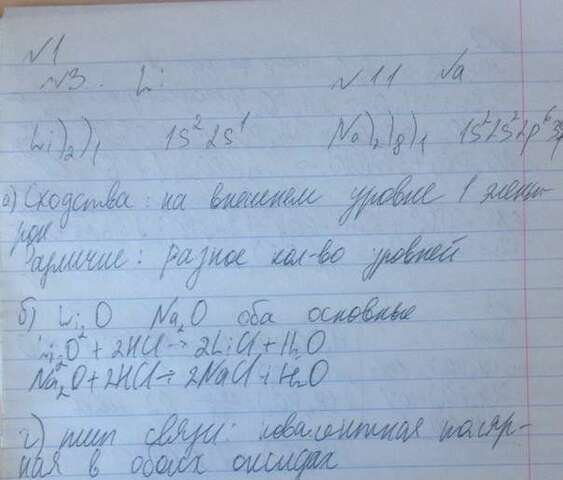 №1
№3. Li № 11 Na
Li)₂)₁ 1s² 2s¹ Na)₂)₈)₁ 1s²2s²2p⁶3s¹
а) Сходства: на внешнем уровне 1 элект-
рон
Различие: разное кол-во уровней
б) Li₂O Na₂O оба основные
Li₂O + 2HCl → 2LiCl + H₂O
Na₂O + 2HCl → 2NaCl + H₂O
г) тип связи: ковалентная поляр-
ная в обоих оксидах